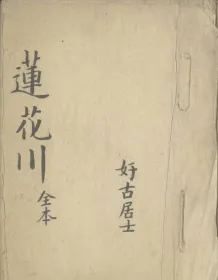 蓮花川
全本
好古居士